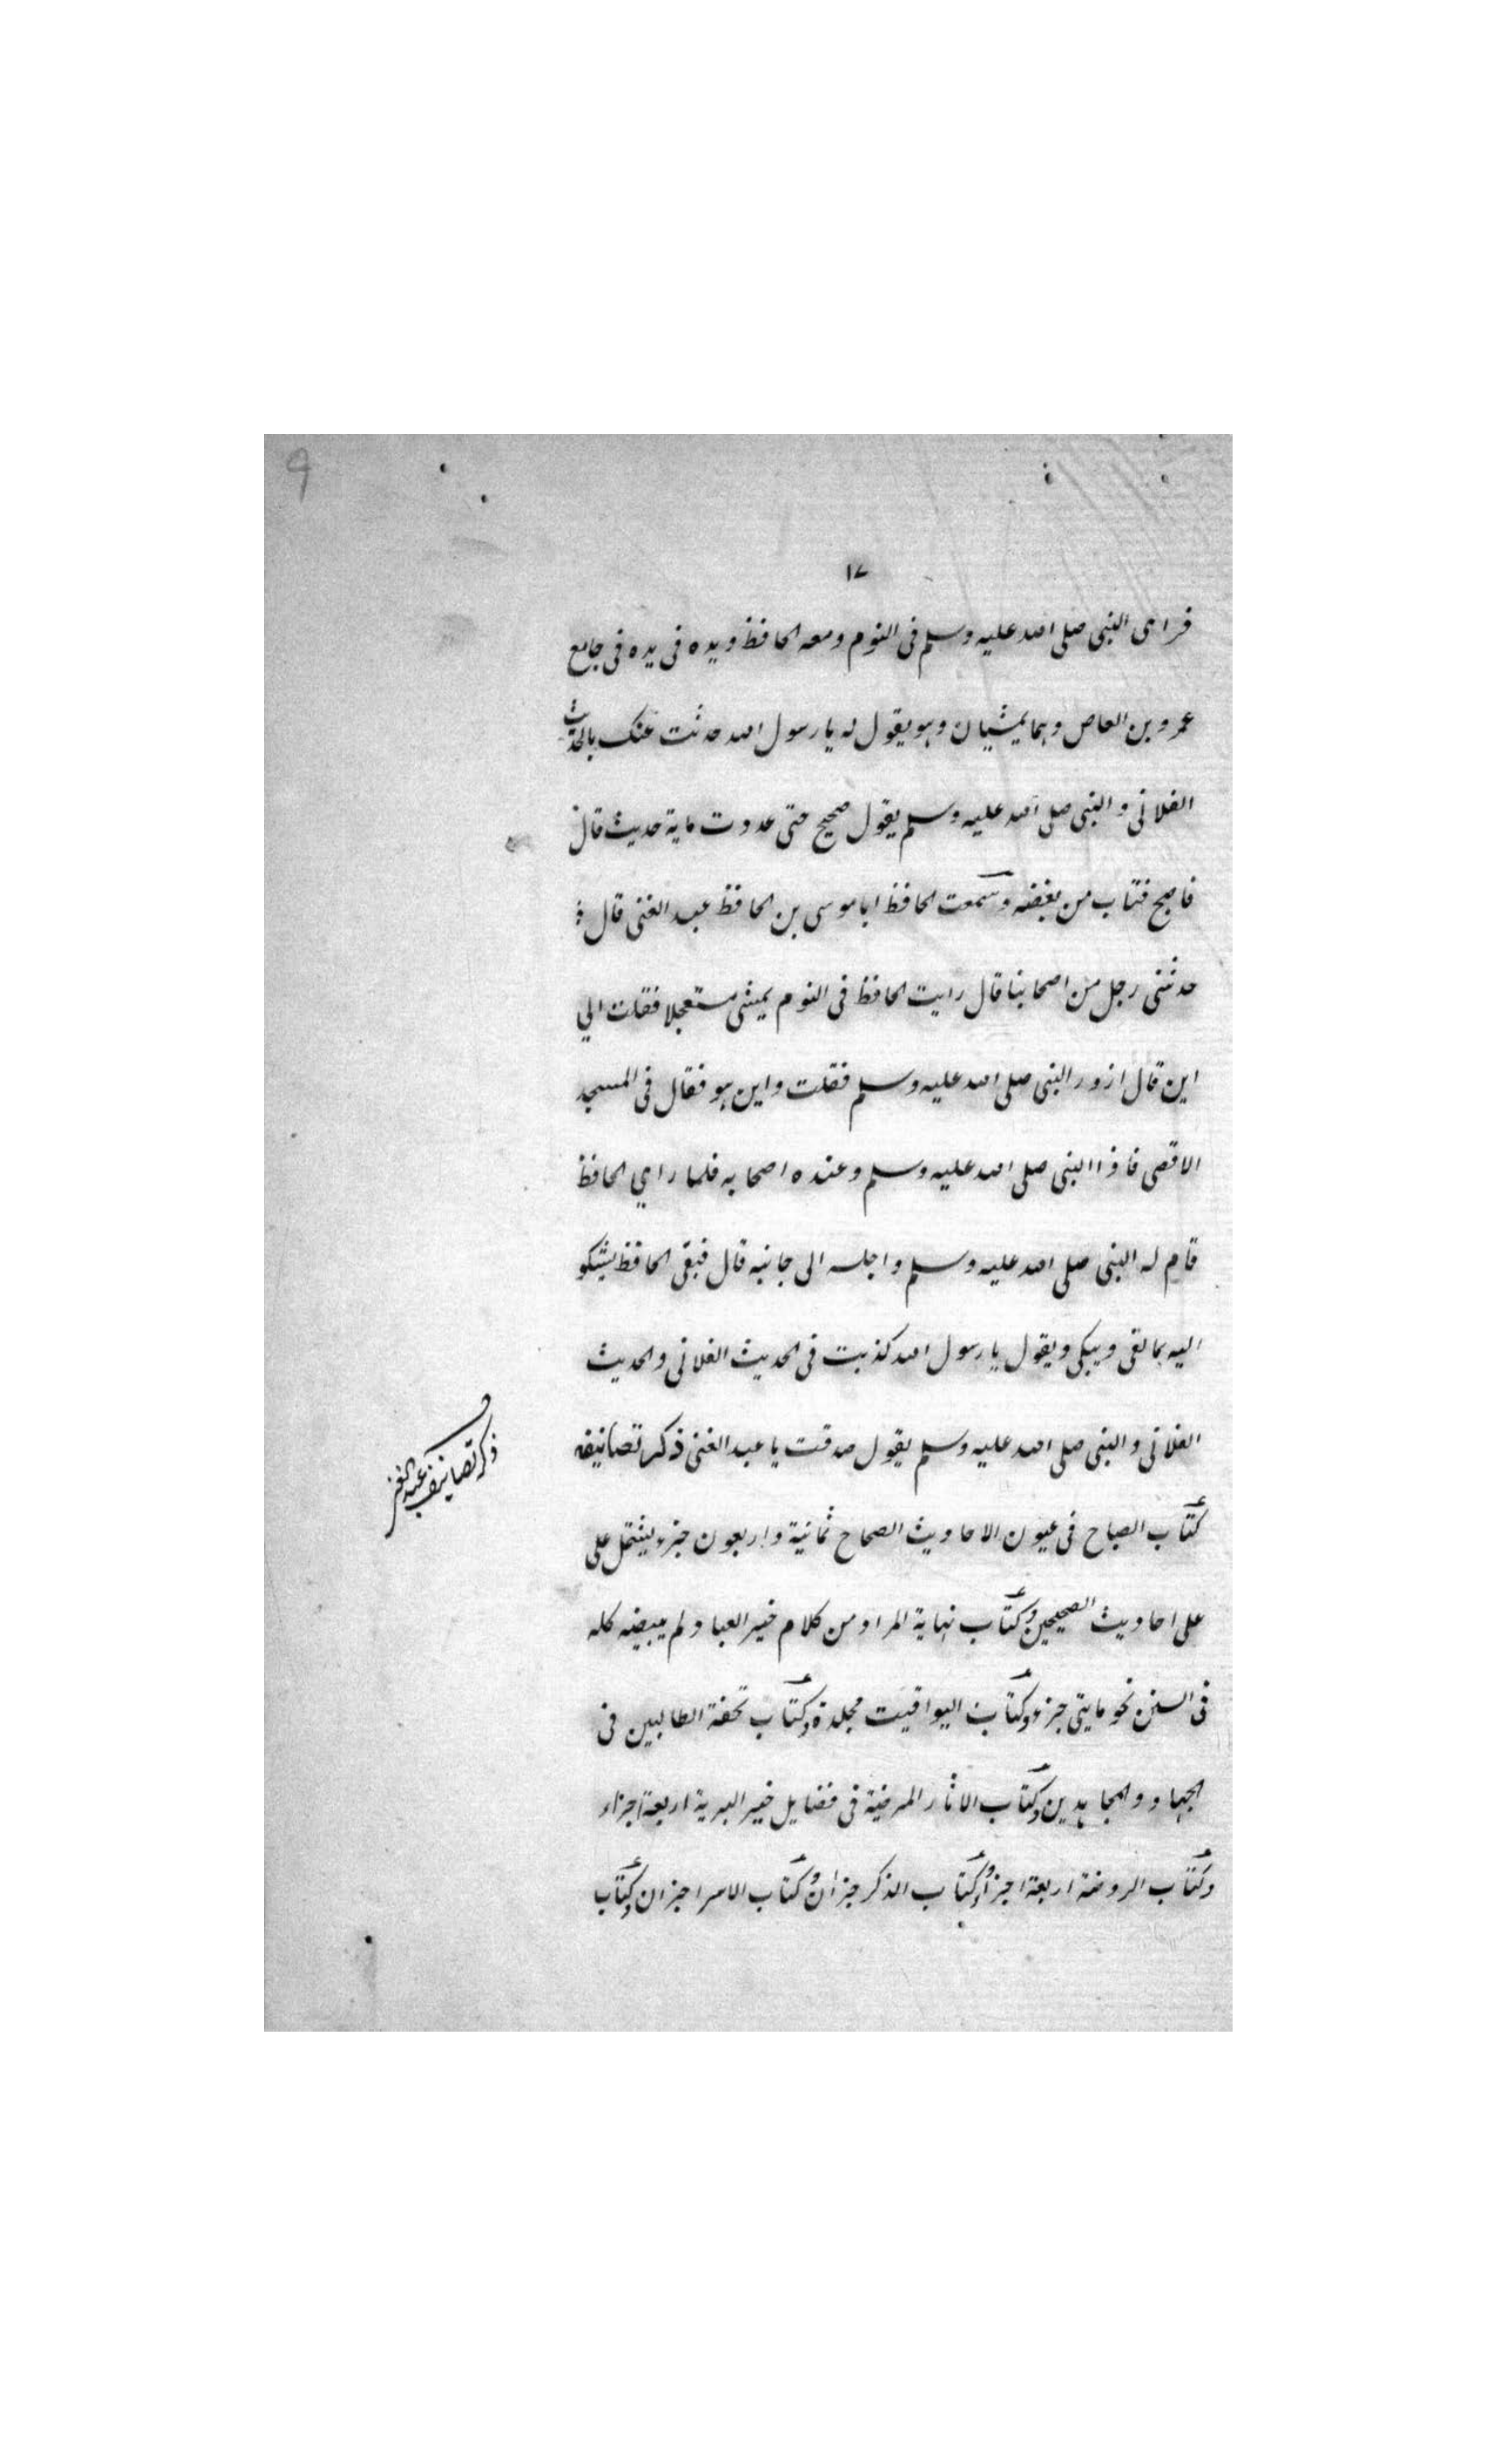 ٩
١٧
فراى النبى صلى الله عليه وسلم فى النوم ومعه الحافظ ويده فى يده فى جامع
عمرو بن العاص وهما يمشيان وهو يقول له يا رسول الله حدثت عنك بالحديث
الفلانى والنبى صلى الله عليه وسلم يقول صحيح حتى عددت ماية حديث قال
فاصبح فتاب من بغضه وسمعت الحافظ ابا موسى بن الحافظ عبد الغنى قال
حدثنى رجل من اصحابنا قال رايت الحافظ فى النوم يمشى مستعجلا فقلت الي
اين قال ازور النبى صلى الله عليه وسلم فقلت واين هو فقال فى المسجد
الاقصى فاذا النبى صلى الله عليه وسلم وعنده اصحابه فلما راي الحافظ
قام له النبى صلى الله عليه وسلم واجلسه الى جانبه قال فبقى الحافظ يشكو
اليه بما لقى ويبكى ويقول يا رسول الله كذبت فى الحديث الفلانى والحديث
الفلانى والنبى صلى الله عليه وسلم يقول صدقت يا عبد الغنى ذكر تصانيفه
ذكر تصانيف عبد الغنى
كتاب الصباح فى عيون الاحاديث الصحاح ثمانية واربعون جزء يشتمل على
على احاديث الصحيحين وكتاب نهاية المراد من كلام خير العباد لم يبيضه كله
فى السنن نحو مايتى جزء وكتاب اليواقيت مجلدة وكتاب تحفة الطالبين فى
الجهاد والمجاهدين وكتاب الاثار المرضية فى فضايل خير البرية اربعة اجزاء
وكتاب الروضة اربعة اجزأ وكتاب الذكر جزان وكتاب الاسرا جزان وكتاب